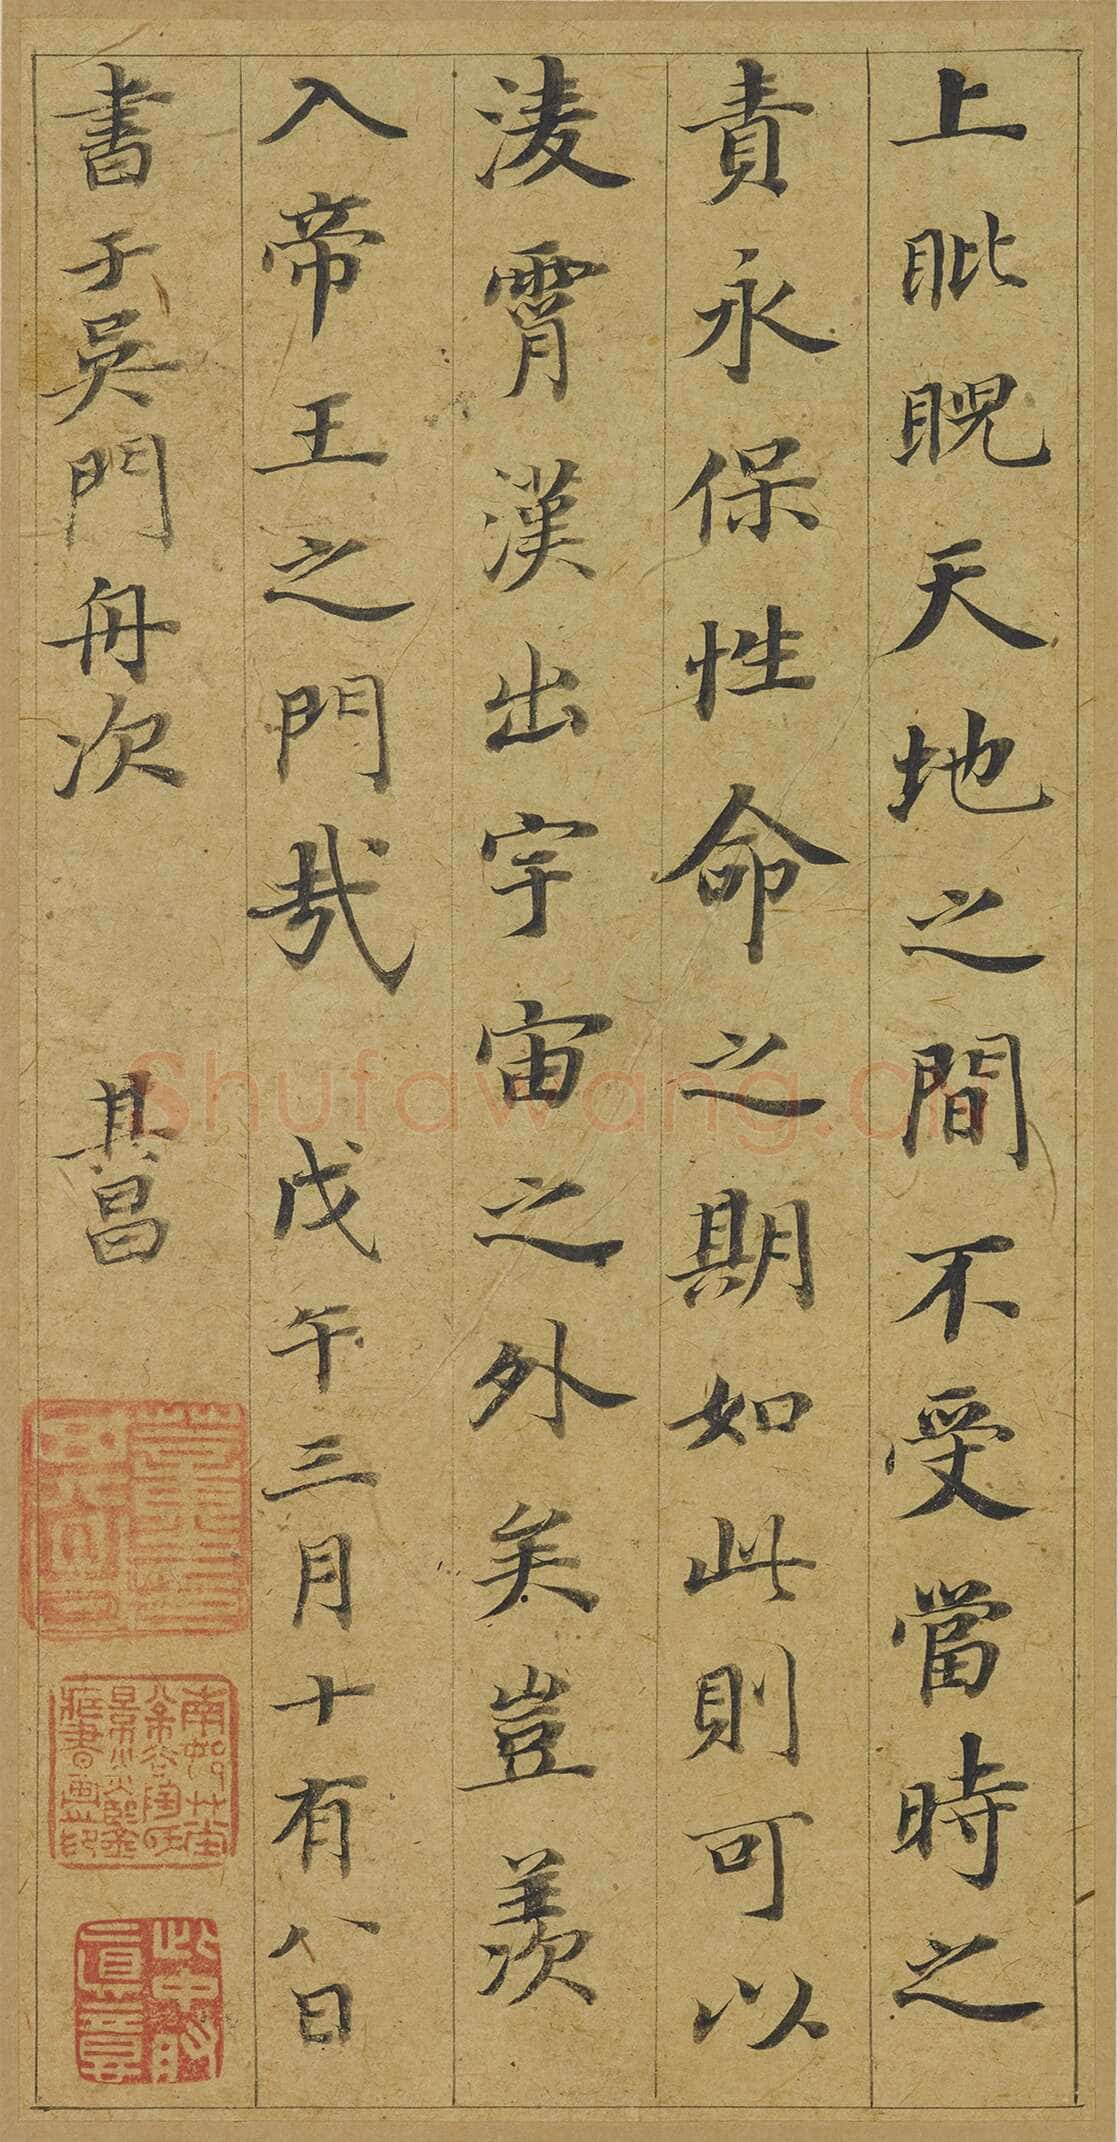 上睥睨天地之間不受當時之
責永保性命之期如此則可以
淩霄漢出宇宙之外矣豈羨
入帝王之門哉 戊午三月十有八日
書于吳門舟次 其昌
Shufawang.cn